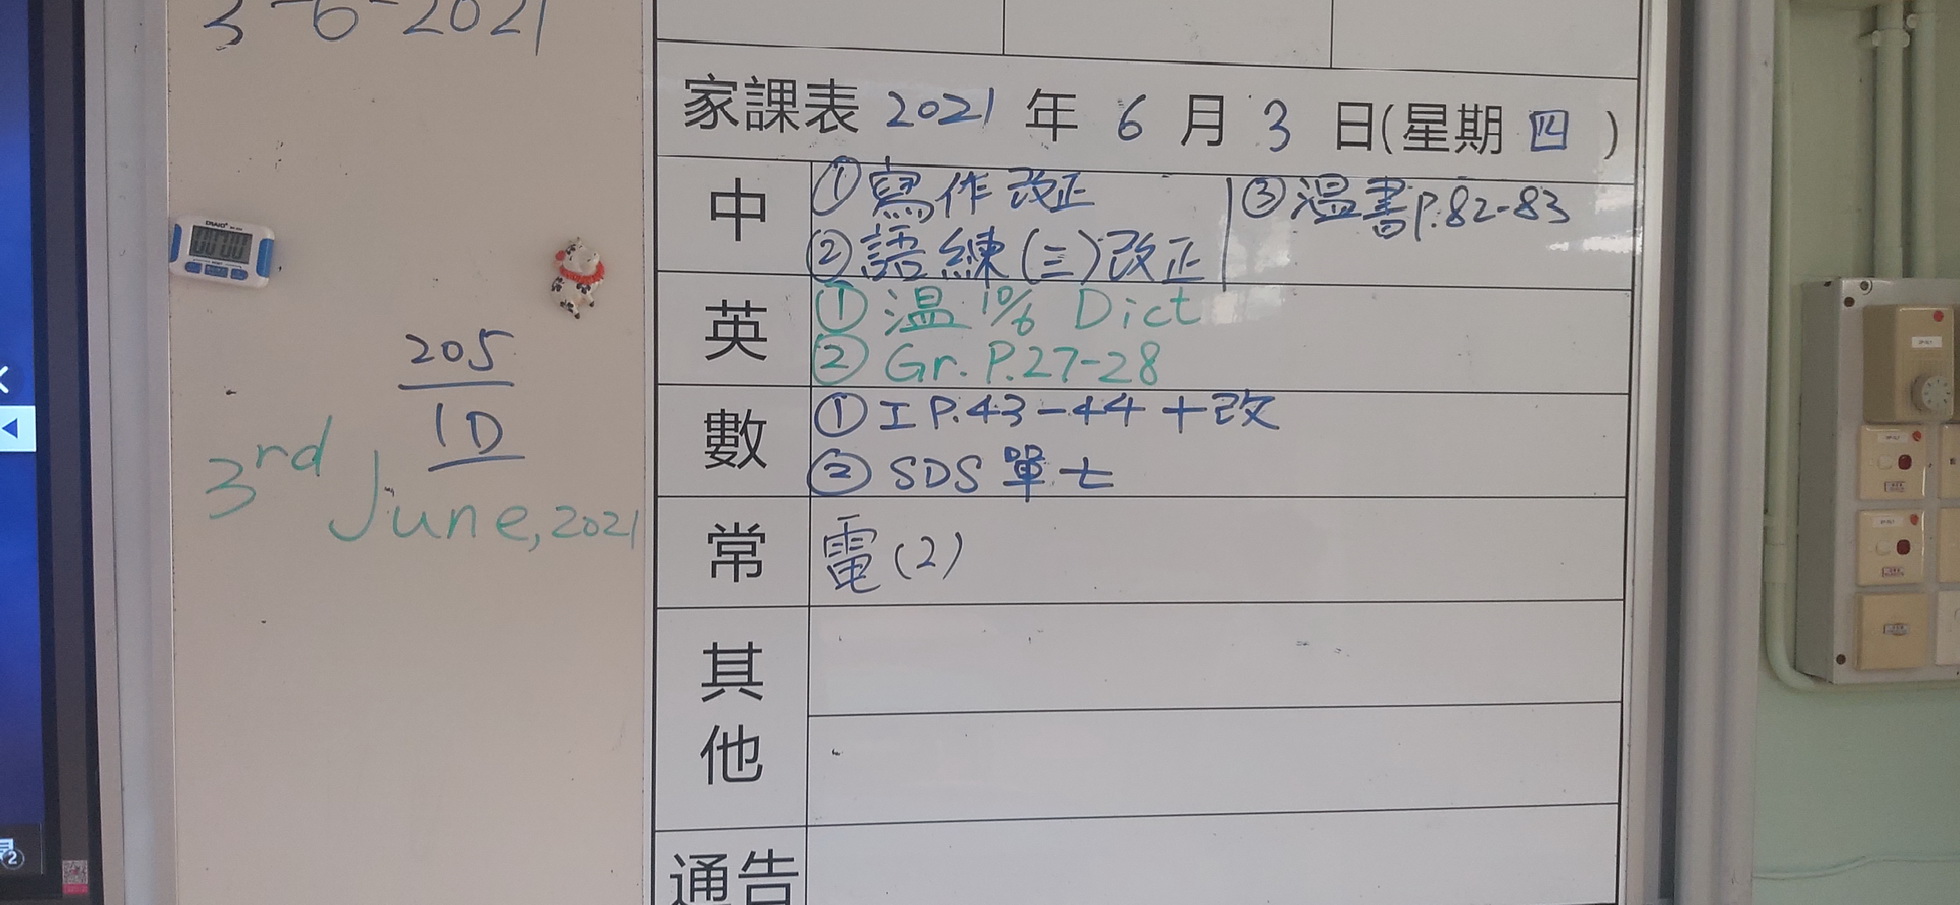 3-6-2021
205
1D
3rd June, 2021
家課表 2021 年 6 月 3 日(星期 四 )
中
①寫作改正
②語練(三)改正
③溫書P.82-83
英
①溫 10/6 Dict
② Gr. P.27-28
數
①工P.43-44+改
② SDS 單七
常
電(2)
其他
通告